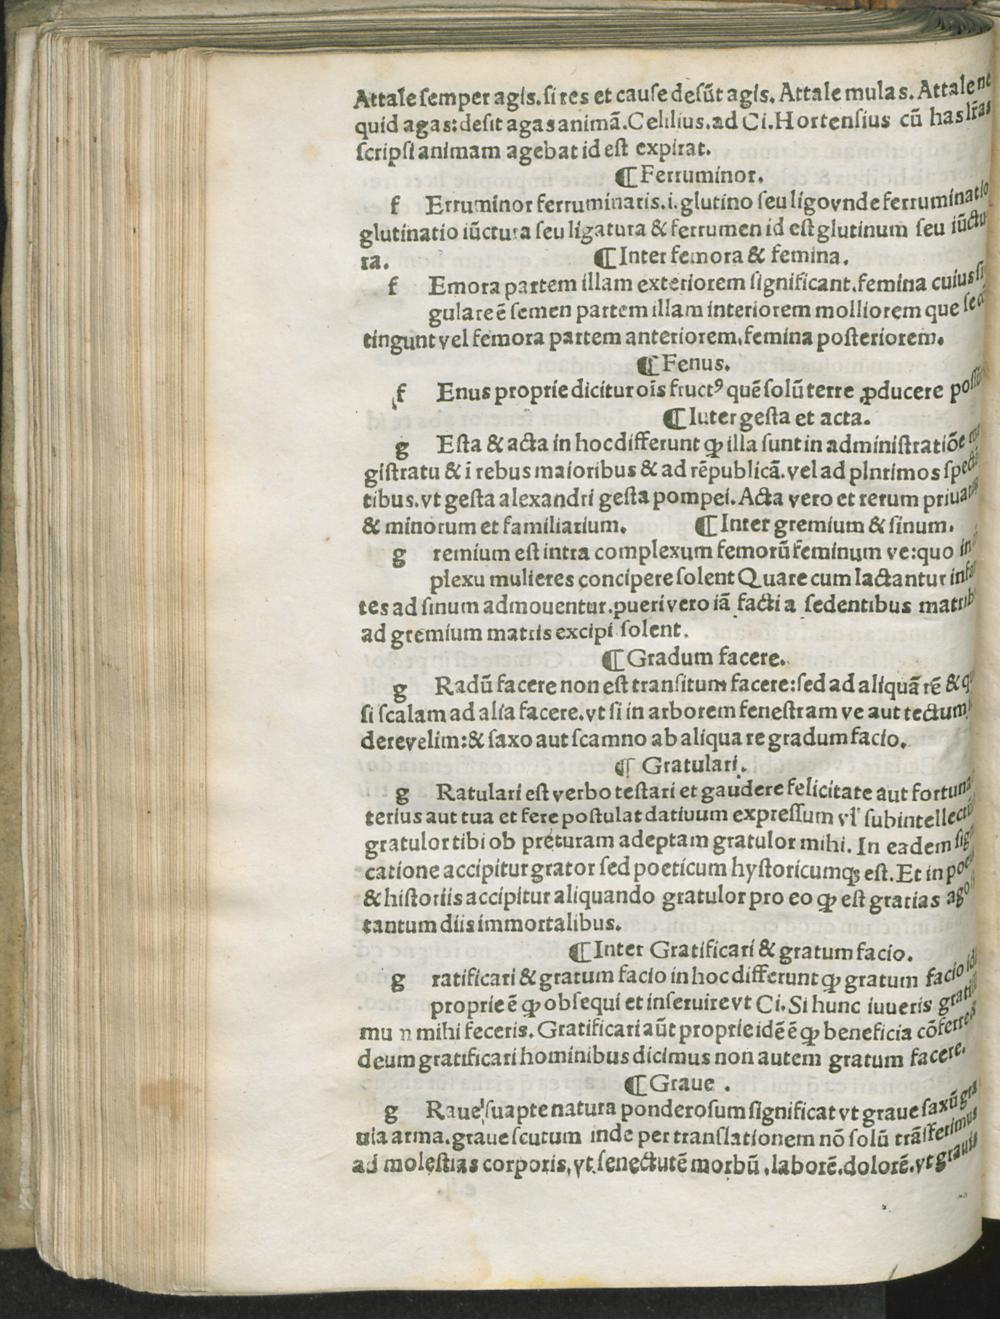 Attale semper agis. si res et cause desūt agis. Attale mulas. Attale ne
quid agas: desit agas animā. Celilius. ad Ci. Hortensius cū has lr̄as
scripsi animam agebat id est expirat.
¶ Ferruminor.
f Erruminor ferruminaris. i. glutino seu ligo vnde ferruminatio
glutinatio iūctura seu ligatura & ferrumen id est glutinum seu iūctu
ra. ¶ Inter femora & femina.
f Emora partem illam exteriorem significant. femina cuius si
gulare ē femen partem illam interiorem molliorem que
tingunt vel femora partem anteriorem, femina posteriorem.
¶ Fenus.
f Enus proprie dicitur oīs fructꝰ quē solū terre ꝓducere
¶ Iuter gesta et acta.
g Esta & acta in hoc differunt ꝙ illa sunt in administratiōe
gistratu & ī rebus maioribus & ad rēpublicā. vel ad plnrimos
tibus. vt gesta alexandri gesta pompei. Acta vero et rerum
& minorum et familiarium. ¶ Inter gremium & sinum.
g remium est intra complexum femorū feminum ve: quo
plexu mulieres concipere solent Quare cum lactantur
tes ad sinum admouentur. pueri vero iā facti a sedentibus
ad gremium matris excipi solent.
¶ Gradum facere.
g Radū facere non est transitum facere: sed ad aliquā rē &
si scalam ad alia facere. vt si in arborem fenestram ve aut tectum
dere velim: & saxo aut scamno ab aliqua re gradum facio.
¶ Gratulari.
g Ratulari est verbo testari et gaudere felicitate aut
terius aut tua et fere postulat datiuum expressum vl' subintellectū
gratulor tibi ob preturam adeptam gratulor mihi. In eadem
catione accipitur grator sed poeticum hystoricumqꝫ est. Et in
& historiis accipitur aliquando gratulor pro eo ꝙ est gratias
tantum diis immortalibus.
¶ Inter Gratificari & gratum facio.
g ratificari & gratum facio in hoc differunt ꝙ gratum facio
proprie ē ꝙ obsequi et inseruire vt Ci. Si hunc iuueris
mu n mihi feceris. Gratificari aūt proprie idē ē ꝙ beneficia
deum gratificari hominibus dicimus non autem gratum facere.
¶ Graue .
g Raue suapte natura ponderosum significat vt graue saxū gra
uia arma. graue scutum inde per translationem nō solū trāsferimus
ad molestias corporis, vt senectutē morbū, laborē. dolorē. vt